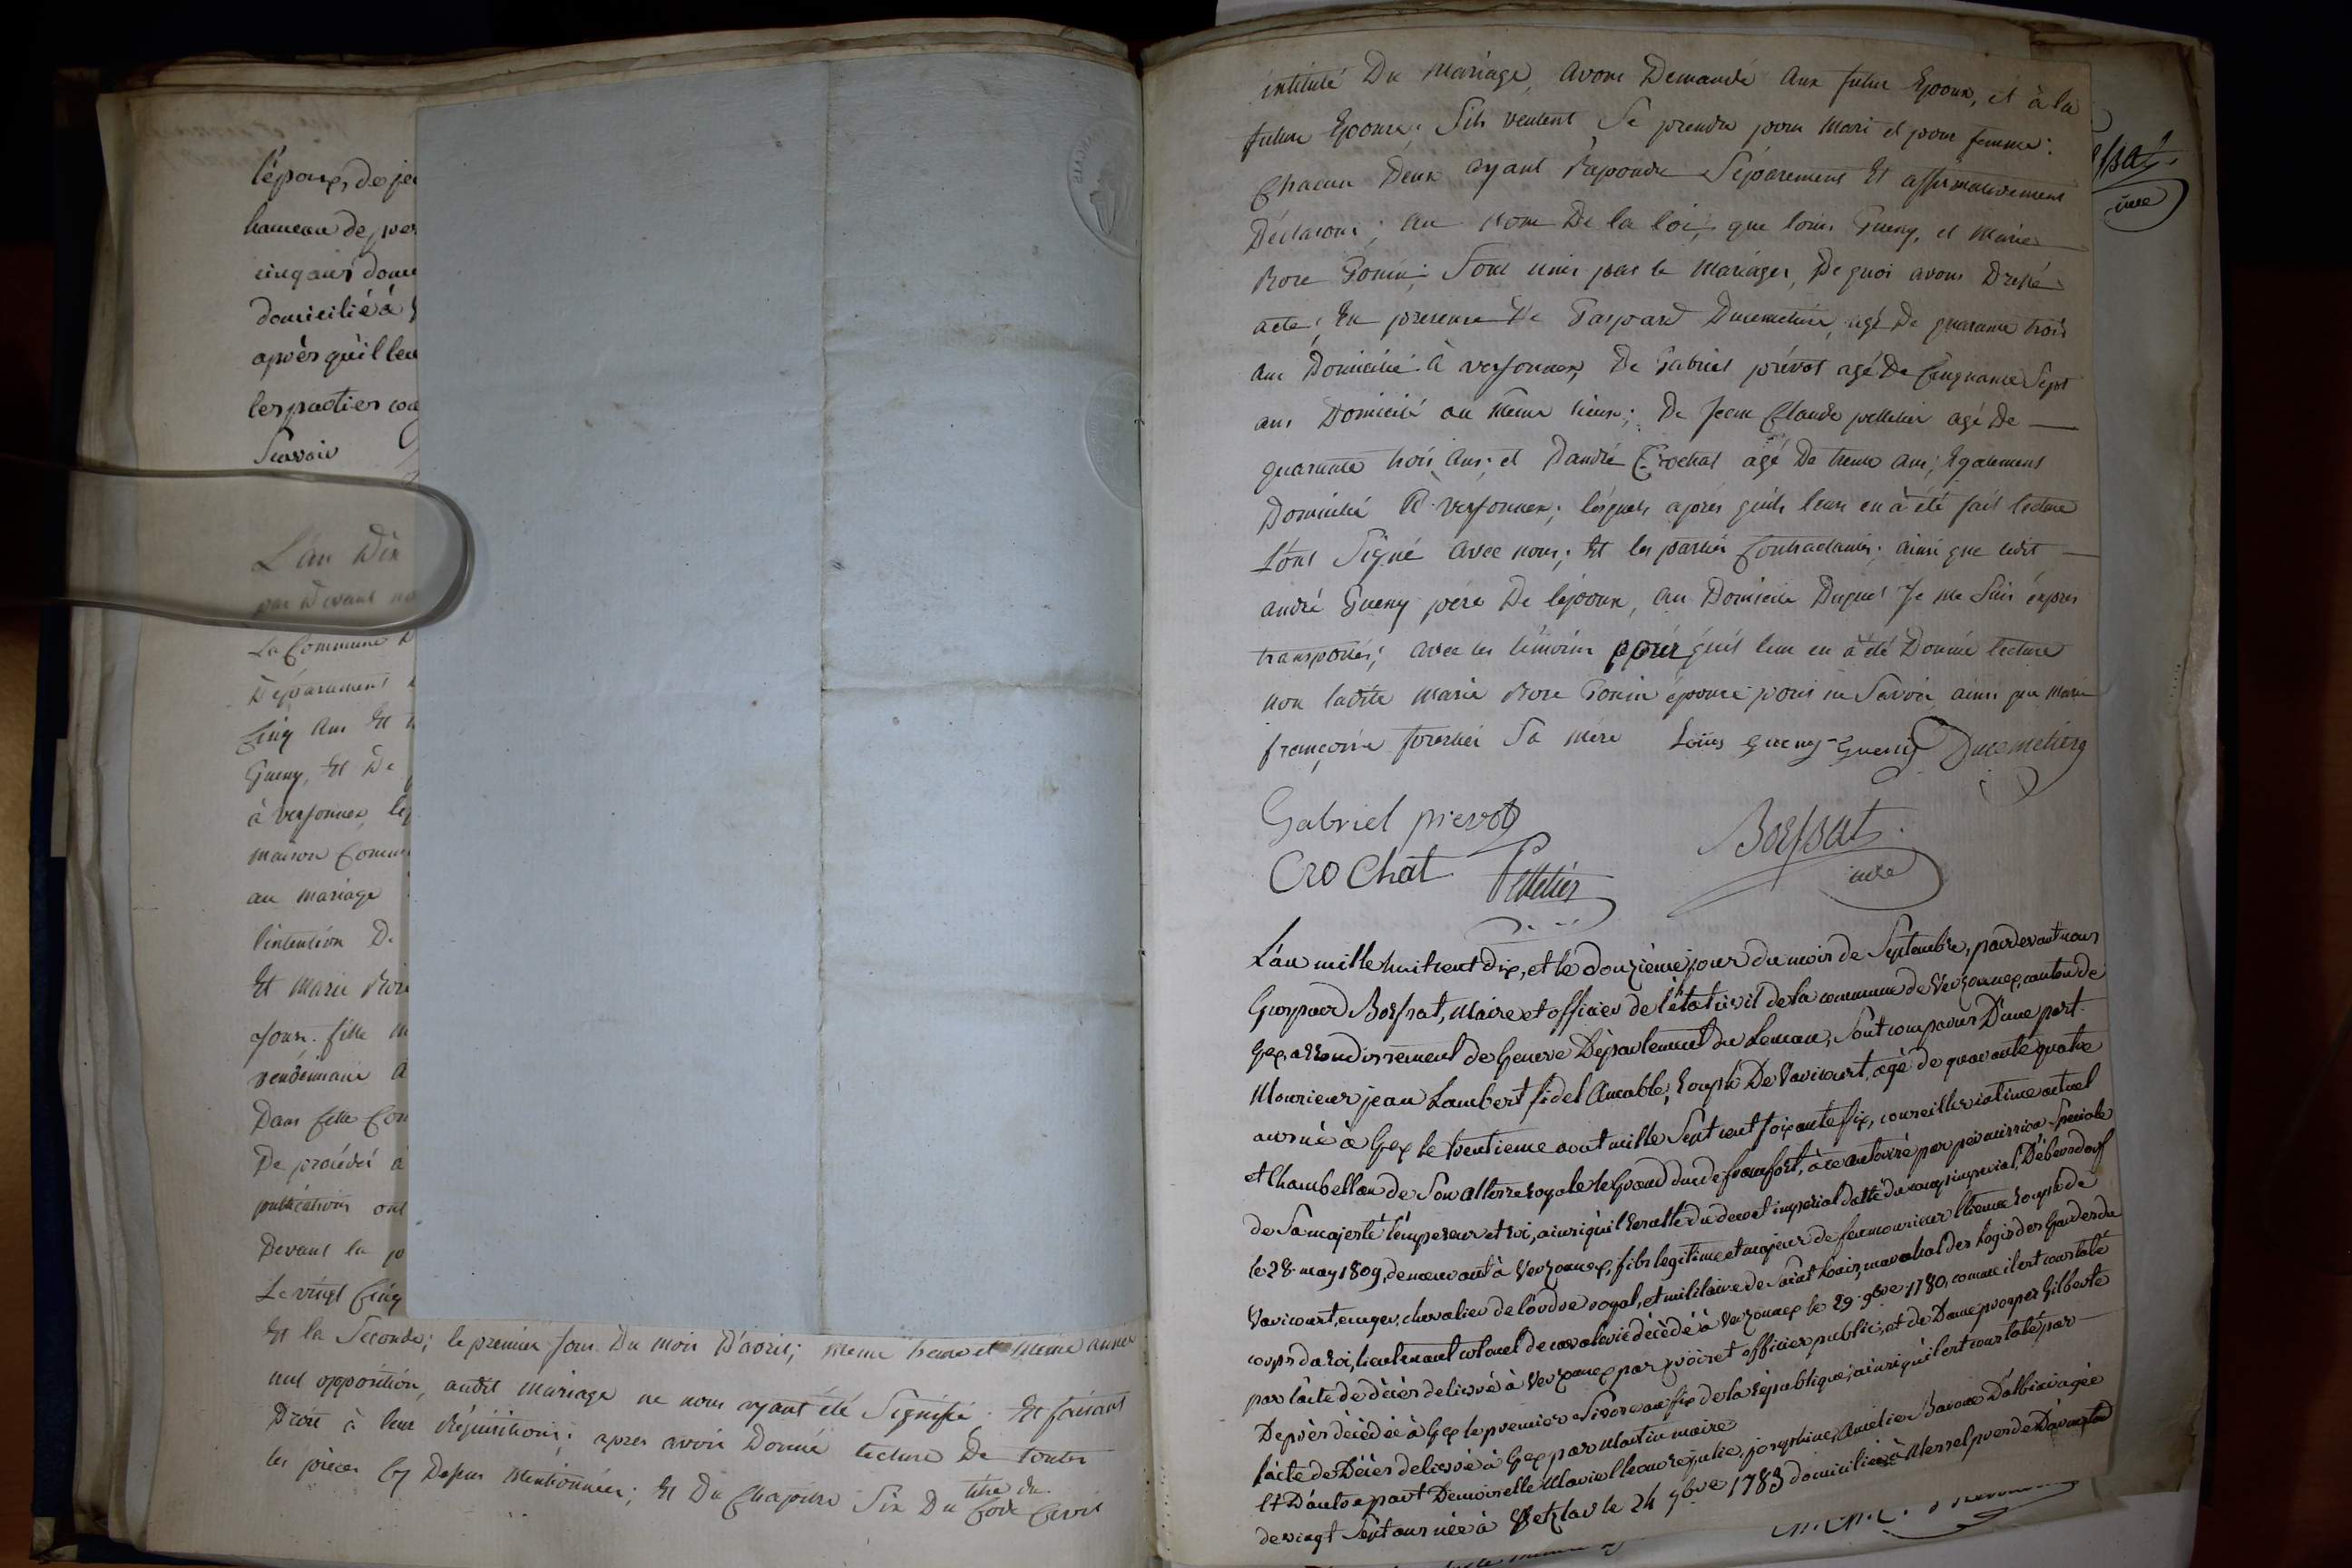 l'époux, de je
hameau de, ver
cinq ans dom
domicilié à
après qu'il leu
les parties co
Scavoir
L'an Dix
par devant no
La Commune D
Département
Cinq ans Et
Gueny, Et De
à versonnex, le
maison Commu
au mariage
l'intention D
Et Marie Rose
Jour. fille m
vendémiaire a
Dans cette Com
De procéder à
publications ont
Devant la po
Le vingt Cinq
Et la Seconde; le premier Jour Du mois D'avril; meme heure et meme année
nul opposition, audit mariage ne nous ayant été Signifié. Et faisant
Droit à leur Réquisitions; apres avoir Donné lecture De toutes
les pièces Cy Dessus Mentionnées; Et Du Chapitre Six Du titre du Code Civil
intitulé Du Mariage, avons Demandé aux futur Epoux, et à la
future Epouse: S'ils veulent Se prendre pour Mari et pour femme:
Chacun D'eux ayant Répondu Séparement Et affirmativement
Déclarons; au nom De la loi, que louis Gueny, et Marie
Rose Gonin; Sont unis par le Mariages, De quoi avons Dressé
acte; En presence De Gaspard Ducimetière, agé De quarante trois
ans Domicilié à versonnex, De Gabriel prévot agé De Cinquante Sept
ans Domicilié au même lieux; De Jean Claude pelletier agé De
quarante trois ans; et D'andré Crochat agé De trente ans; Egalement
Domicilié à versonnex; lesquels après qu'ils leurs en à été fait lecture
L'ont Signé avec nous; Et les parties Contractantes; ainsi que ledit
andré Gueny père De l'époux, au Domicile Duquel Je me Suis éxpres
transportés; avec les témoins après qu'il leur en à été Donné lecture
non ladite Marie Rose Gonin épouse pour ne Savoir ainsi que Marie
françoise forestier Sa mère Loüis gueny Gueny Ducimetière
Gabriel prevot
Crochat Pelletier Boissat
maire
L'an mille huit cent dix, et le douzième jour du mois de Septembre, pardevant nous
Gaspard Boissat, Maire et officier de l'état civil de la commune de Versonnex, canton de
Gex, arrondissement de Geneve Département du Leman, Sont comparus D'une part
Monsieur jean Lambert fidel Amable, Rouph De Varicourt, agé de quarante quatre
ans né à Gex le trentieme aout mille Sept cent soixante six, conseiller intime actuel
et Chambellan de Son altesse royale le Grand duc de francfort, à ce autorisé par permission Speciale
de Sa majesté l'émpereur et roi, ainsi qu'il resulte du decret imperial datté du camp imperial, D'Ebersdorf
le 28. may 1809, demeurant à Versonnex, fils legitime et majeur de feu monsieur Etienne Rouph de
Varicourt, ecuyer, chevalier de l'ordre royal, et militaire de Saint Louis, marechal des Logis des Gardes du
corps du roi, lieutenant colonel de cavalerie décédé à Versonnex le 29 9bre 1780, comme il est constaté
par l'acte de décès delivré à Versonnex par voiret officier public, et de Dame prosper Gilberte
Deprès décédée à Gex le premier Nivose an six de la république, ainsi qu'il est constaté par
l'acte de Décès delivré à Gex par Martin maire
Et D'autre part Demoiselle Marie Eleonore julie, josephine, Amelie Baronne D'albini agée
de vingt Sept ans née à Wetzlar le 24 9bre 1783 domiciliée à Messel près de Darmstad